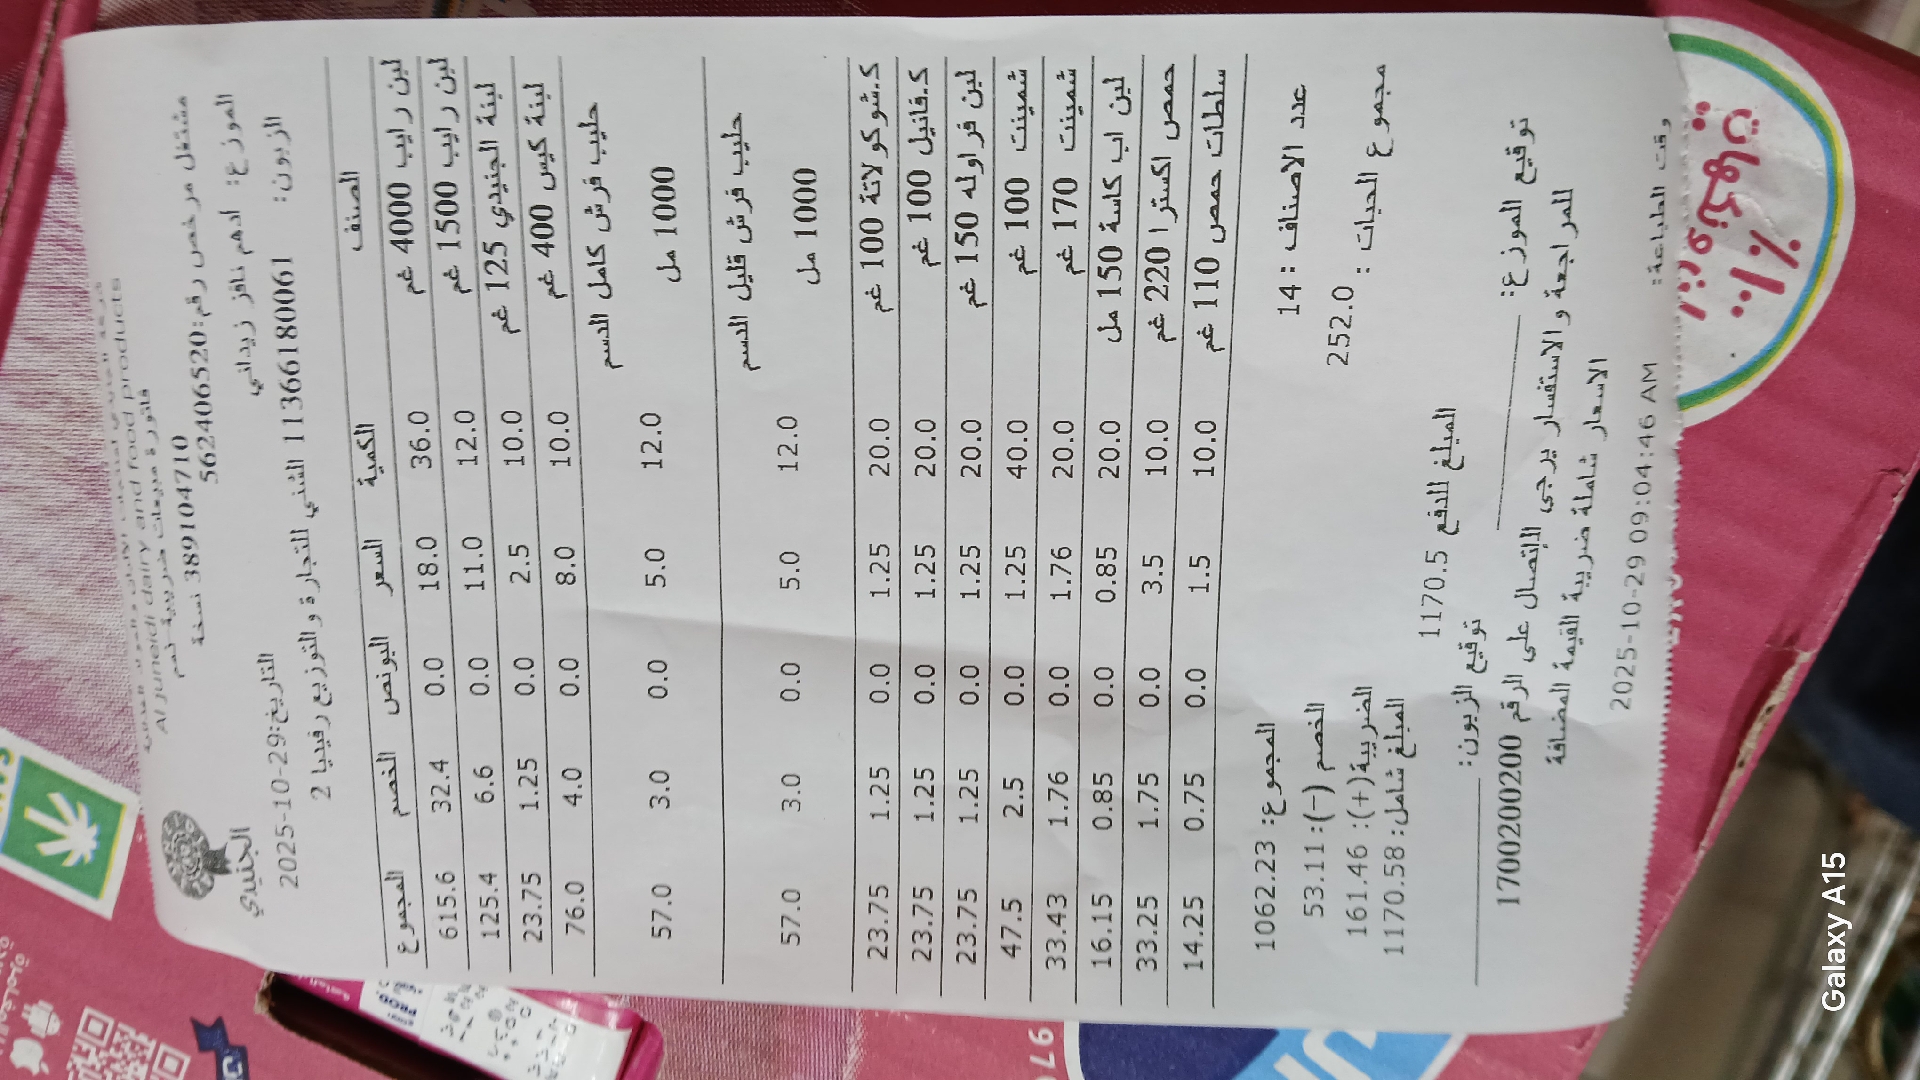 Al juneidi dairy and food products
فاتورة مبيعات ضريبية رقم
389104710 نسخة
مشتغل مرخص رقم:562406520
الجنيدي
الموزع: ادهم نافز زيداني
التاريخ:29-10-2025
الزبون: 11366180061 الثني للتجارة والتوزيع رفيديا 2
الصنف الكمية السعر البونص الخصم المجموع
لبن رايب 4000 غم 36.0 18.0 0.0 32.4 615.6
لبن رايب 1500 غم 12.0 11.0 0.0 6.6 125.4
لبنة الجنيدي 125 غم 10.0 2.5 0.0 1.25 23.75
لبنة كيس 400 غم 10.0 8.0 0.0 4.0 76.0
حليب فرش كامل الدسم
1000 مل 12.0 5.0 0.0 3.0 57.0
حليب فرش قليل الدسم
1000 مل 12.0 5.0 0.0 3.0 57.0
ك.شوكولاتة 100 غم 20.0 1.25 0.0 1.25 23.75
ك.فانيل 100 غم 20.0 1.25 0.0 1.25 23.75
لبن فراوله 150 غم 20.0 1.25 0.0 1.25 23.75
شمينت 100 غم 40.0 1.25 0.0 2.5 47.5
شمينت 170 غم 20.0 1.76 0.0 1.76 33.43
لبن اب كاسة 150 مل 20.0 0.85 0.0 0.85 16.15
حمص اكسترا 220 غم 10.0 3.5 0.0 1.75 33.25
سلطات حمص 110 غم 10.0 1.5 0.0 0.75 14.25
عدد الاصناف : 14 المجموع: 1062.23
الخصم (-): 53.11
مجموع الحبات : 252.0 الضريبة(+): 161.46
المبلغ شامل: 1170.58
المبلغ للدفع 1170.5
توقيع الموزع: توقيع الزبون:
للمراجعة والاستفسار يرجى الاتصال على الرقم 1700200200
الاسعار شاملة ضريبة القيمة المضافة
وقت الطباعة: 2025-10-29 09:04:46 AM
٪١٠٠
Galaxy A15